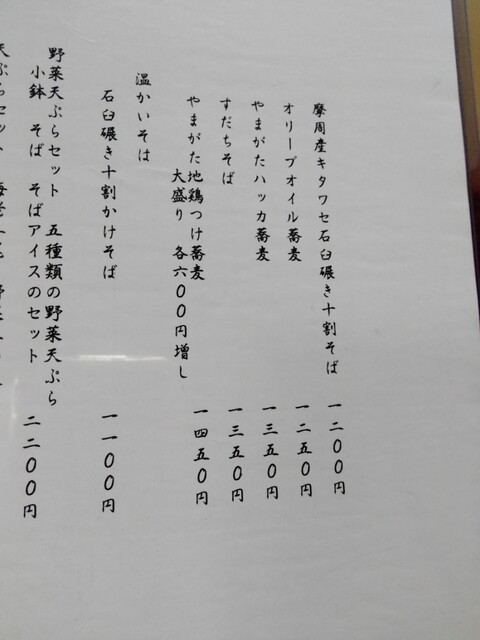 摩周産キタワセ石臼碾き十割そば 一二〇〇円
オリーブオイル蕎麦 一二五〇円
やまがたハッカ蕎麦 一三五〇円
すだちそば 一三五〇円
やまがた地鶏つけ蕎麦 一四五〇円
大盛り 各六〇〇円増し
温かいそば
石臼碾き十割かけそば 一一〇〇円
野菜天ぷらセット 五種類の野菜天ぷら
小鉢 そば そばアイスのセット 二二〇〇円
天ぷらセット